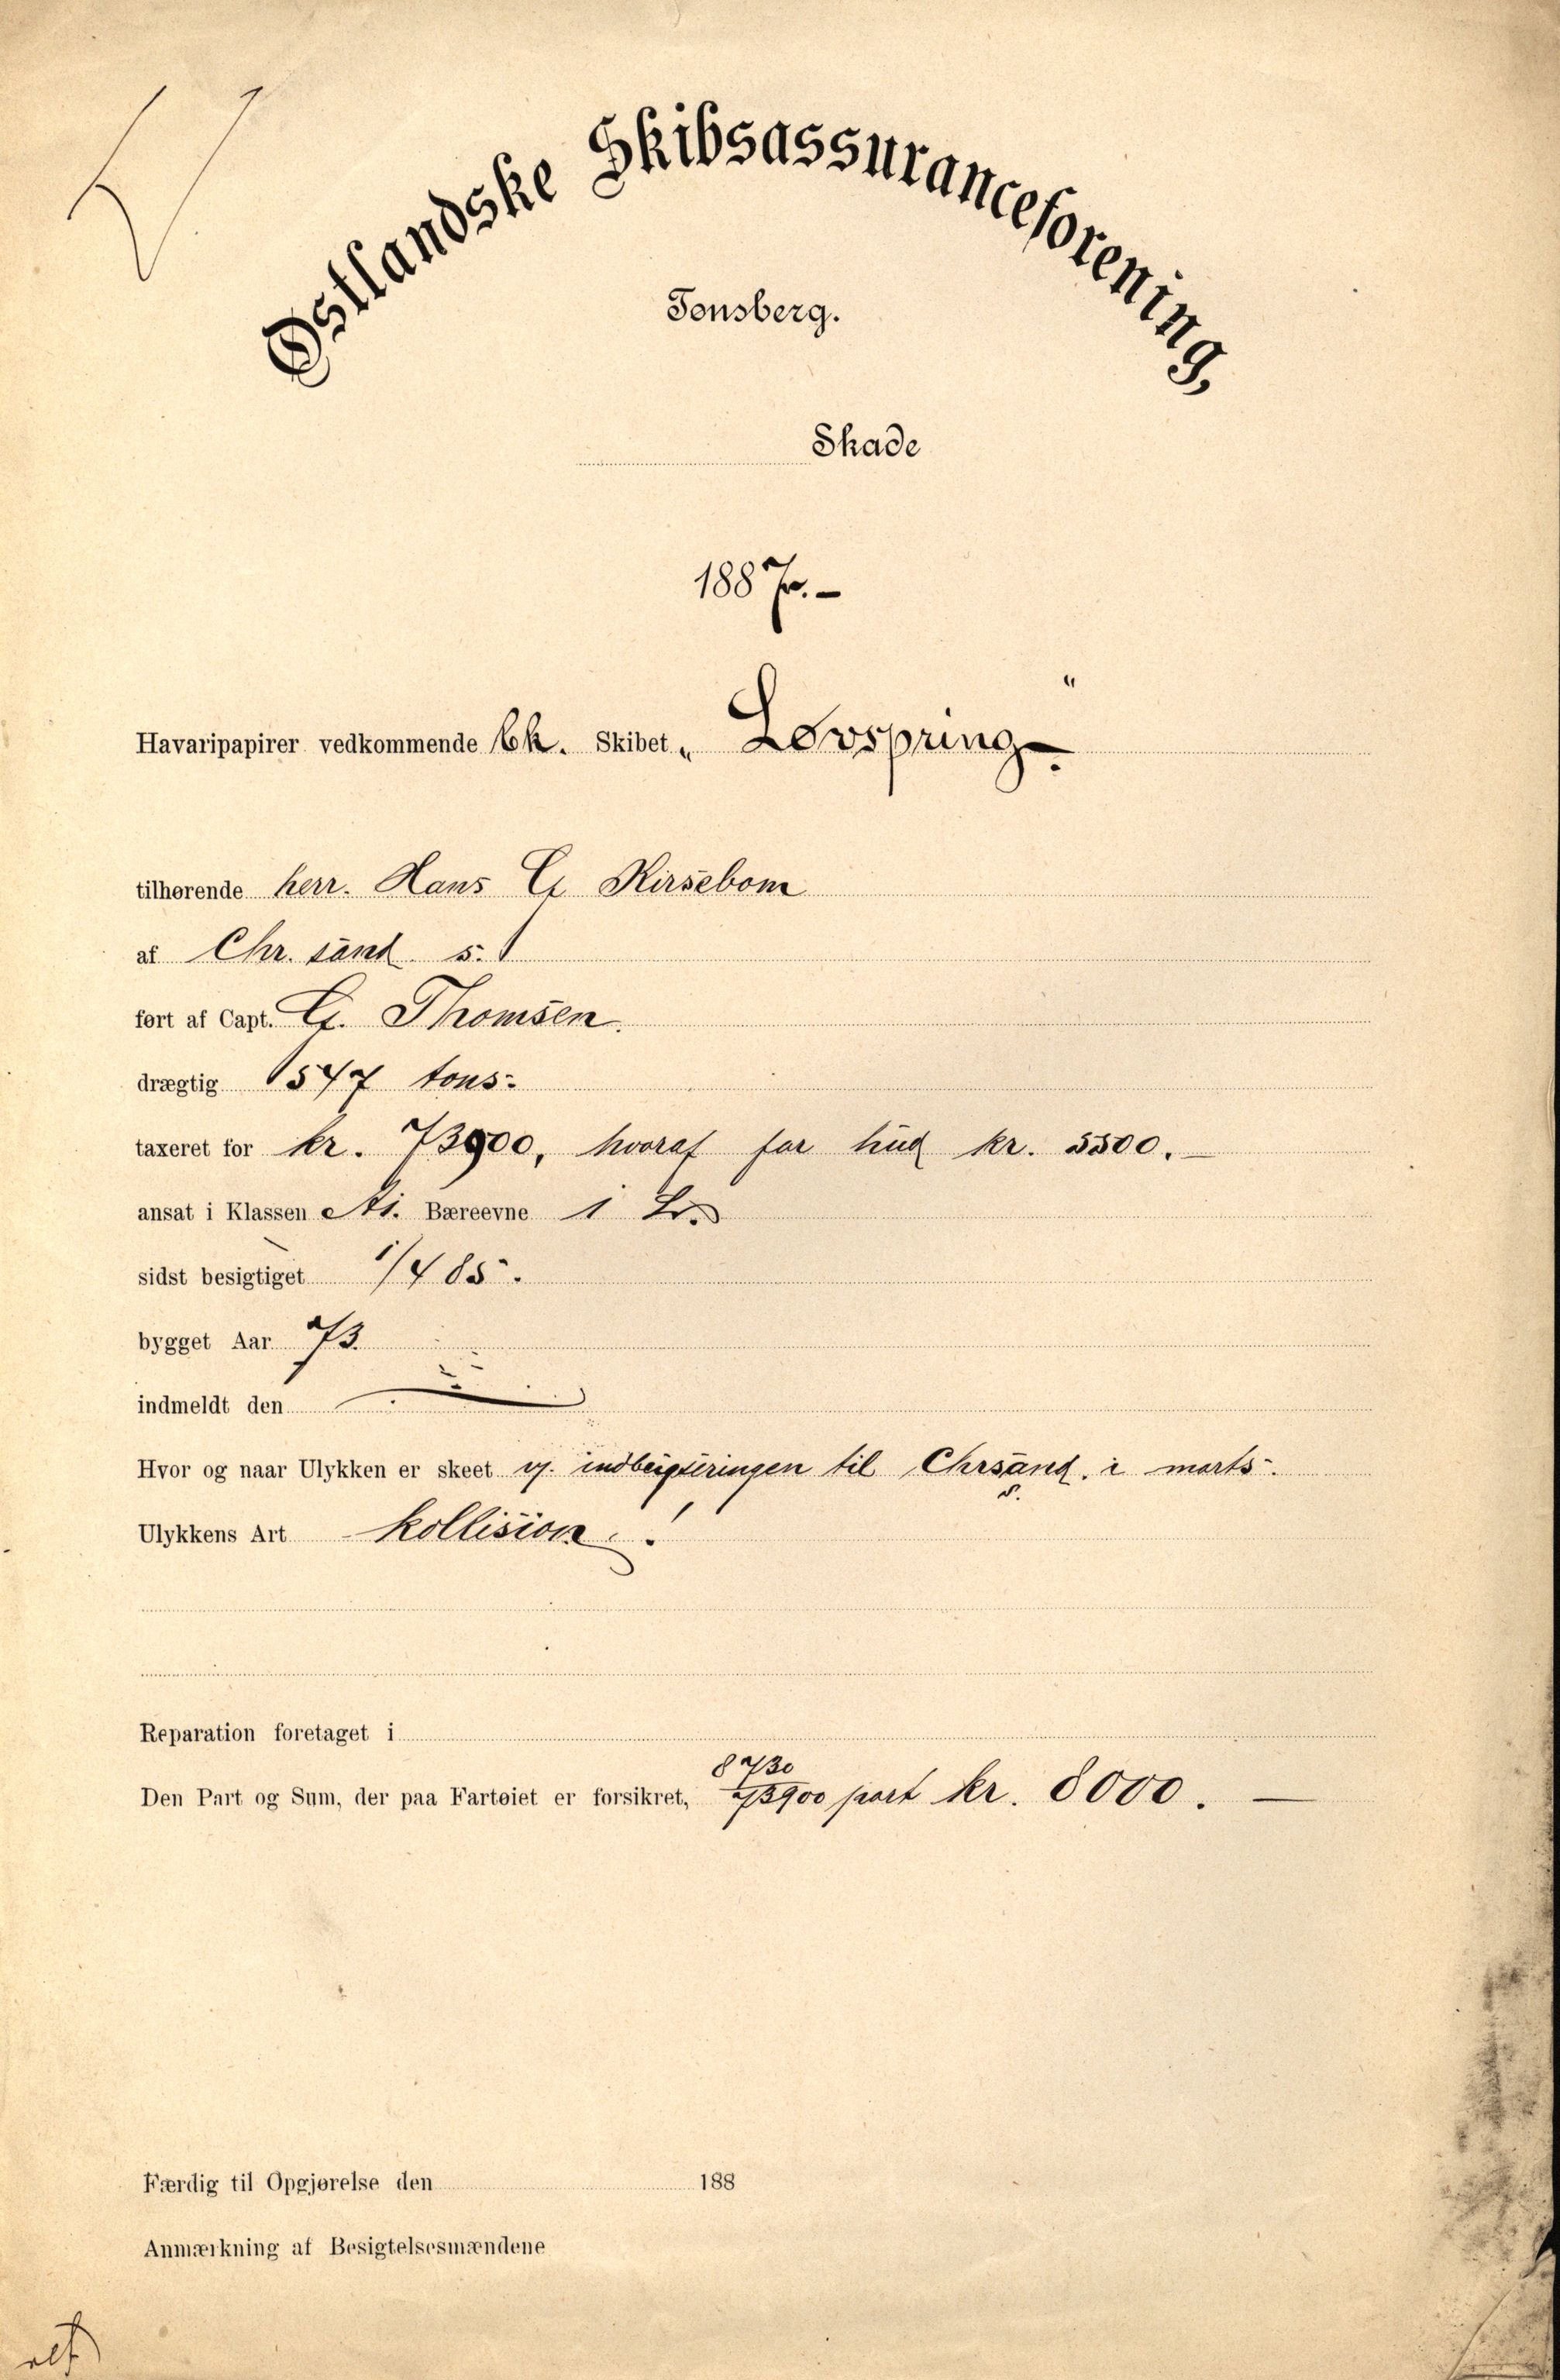 Østlandske Skibsassuranceforening,
Tønsberg.
Skade
1887.–
Havaripapirer vedkommende bk. Skibet „Løvspring“
tilhørende herr. Hans Cr Kirsebom
af Chr. sand s.
ført af Capt. Cr. Thomsen.
drægtig 547 tons.
taxeret for kr. 73900, hvoraf for hud kr. 5500.–
ansat i Klassen A1. Bæreevne 1
sidst besigtiget 1/4 85.
bygget Aar 73.
indmeldt den
Hvor og naar Ulykken er skeet v. indbugseringen til Chrsand s. i marts.
Ulykkens Art kollision.
Reparation foretaget i
Den Part og Sum, der paa Fartøiet er forsikret, 8730/73900 part kr. 8000. –
Færdig til Opgjørelse den 188
Anmærkning af Besigtelsesmændene